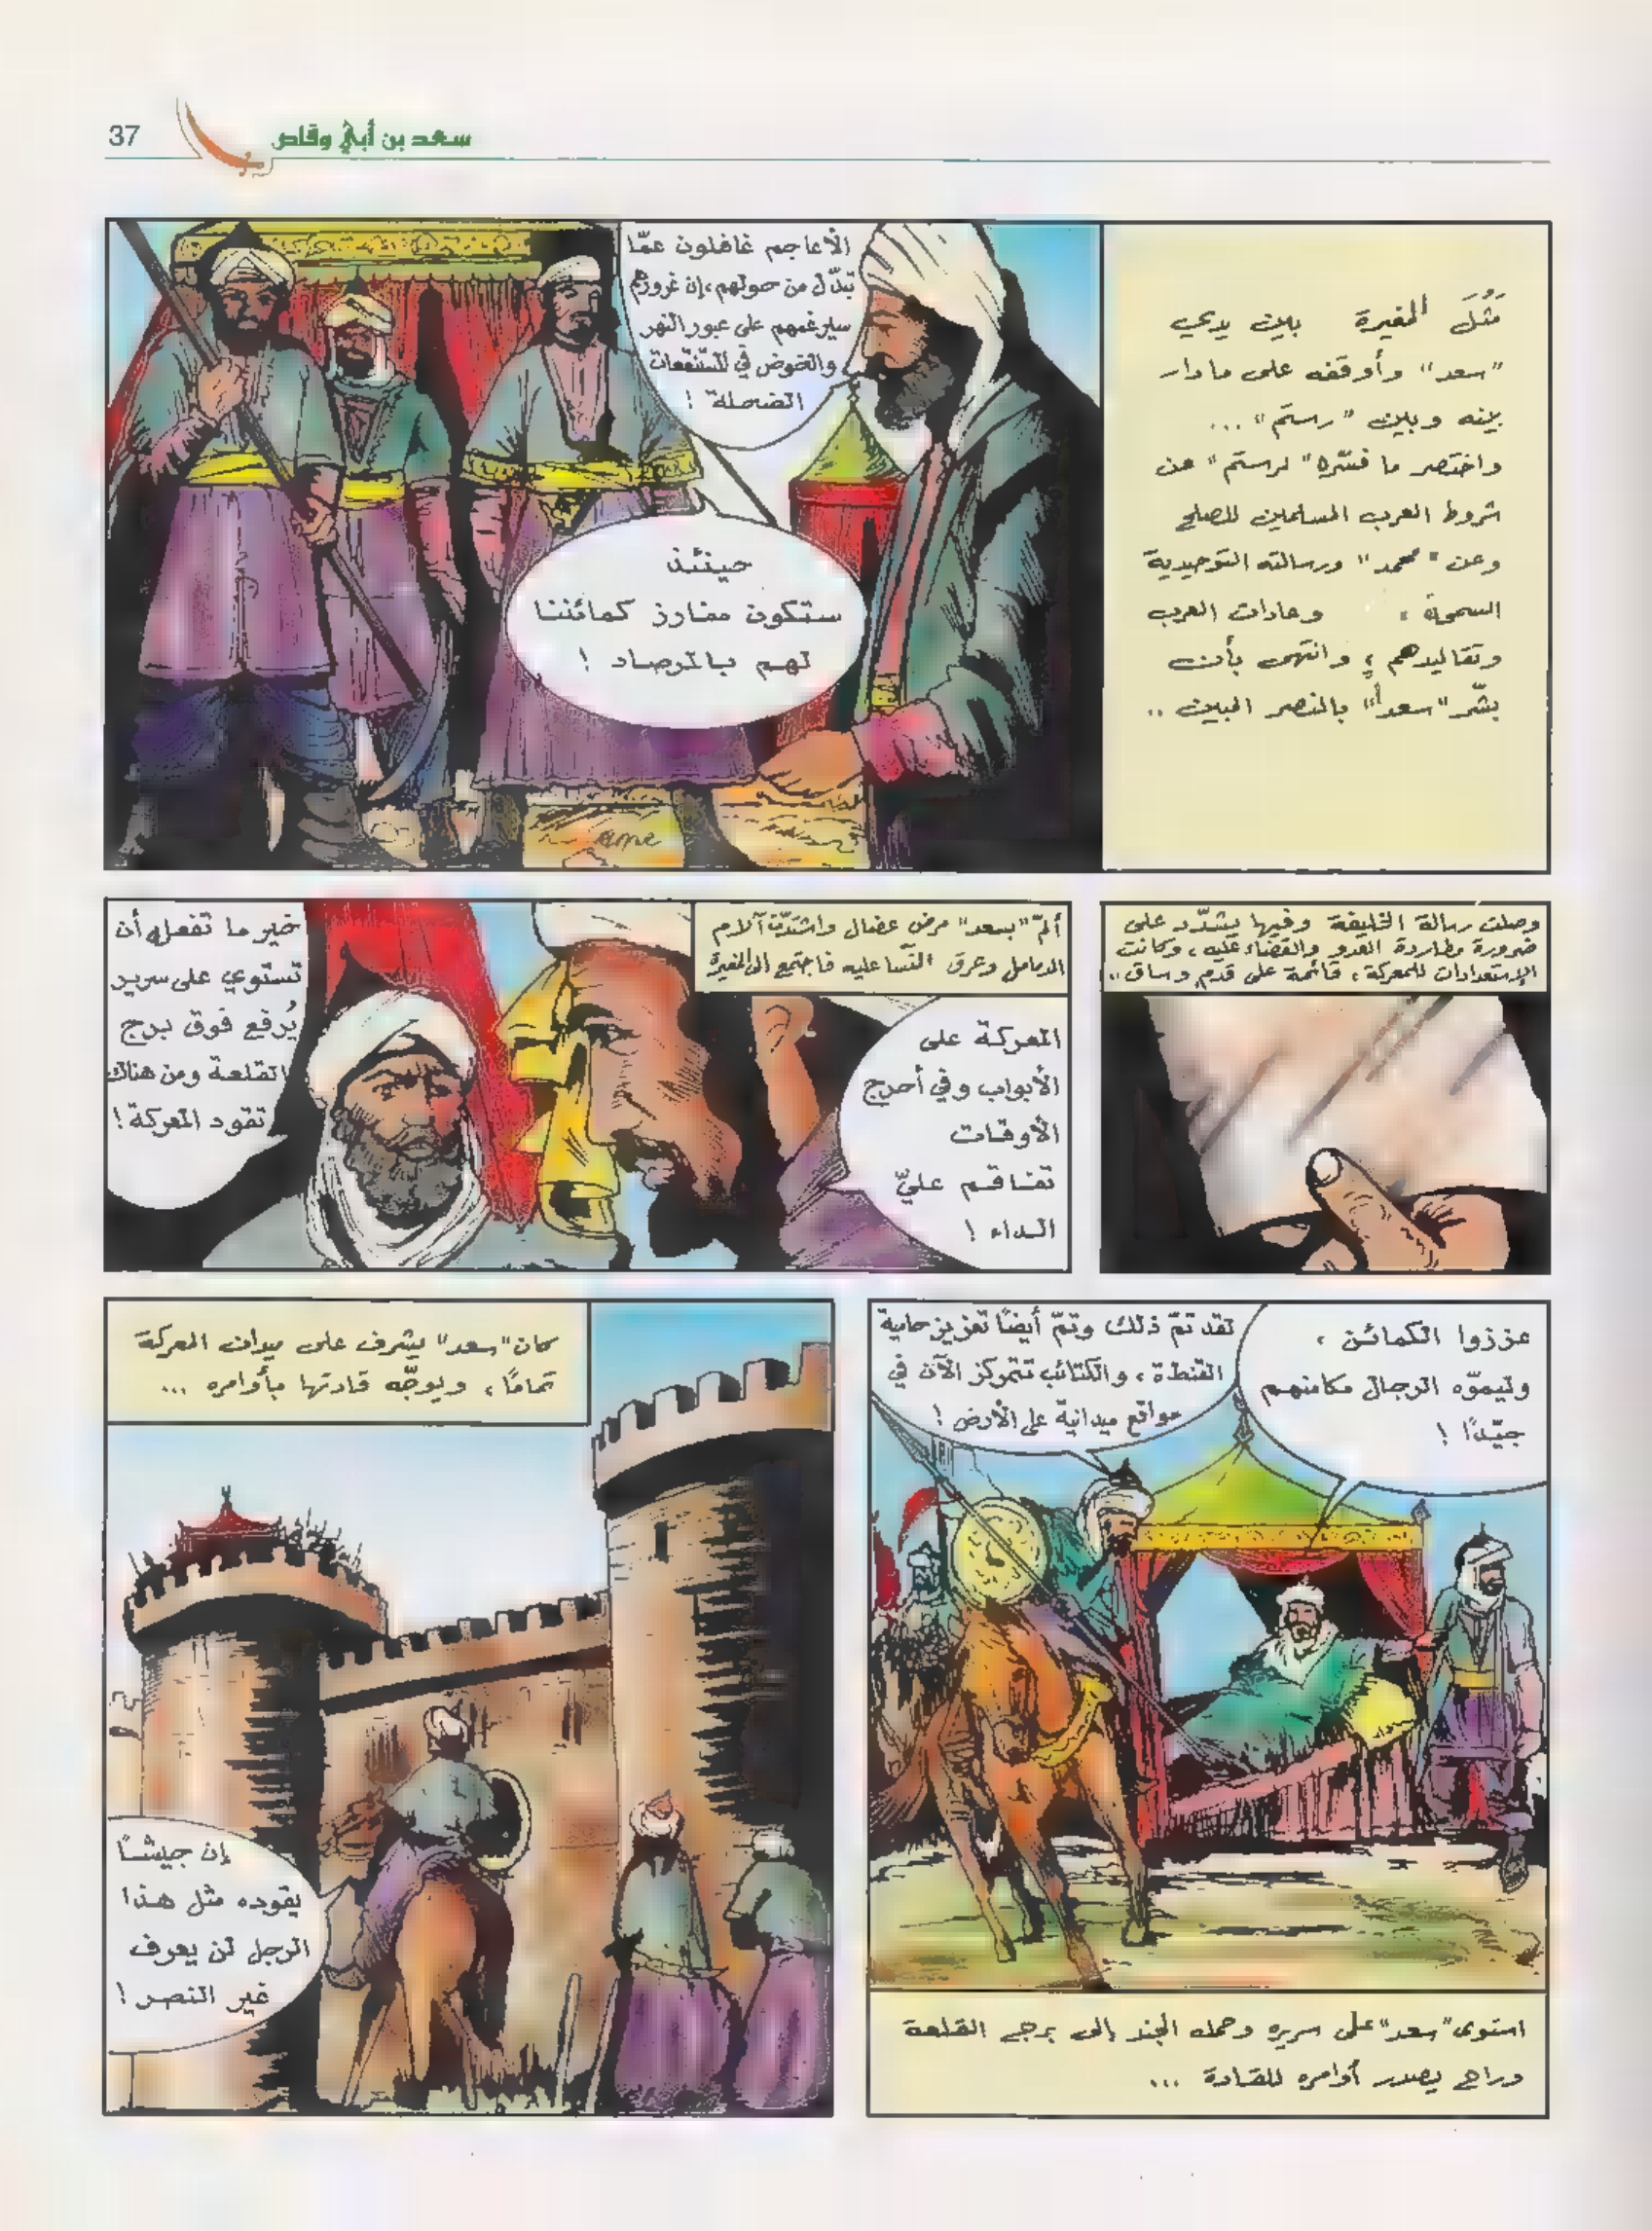 37
سعد بن أبي وقاص
مَثُلَ المغيرة بين يدي
"سعد" وأوقفه على ما دار
بينه وبين "رستم" ...
واختصر ما فسّره "لرستم" عن
شروط العرب المسلمين للصلح
وعن "محمد" ورسالته التوحيدية
السمحة، وعادات العرب
وتقاليدهم ؛ وانتهى بأن
بشّر "سعداً" بالنصر المبين ..
الأعاجم غافلون عمّا
تبدّل من حولهم، إن غرورهم
سيرغمهم على عبور النهر
والخوض في المستنقعات
الضحلة !
حينئذ
ستكون مفارز كمائننا
لهم بالمرصاد !
وصلت رسالة الخليفة وفيها يشدّد على
ضرورة مطاردة العدو والقضاء عليه، وكانت
الإستعدادات للمعركة، قائمة على قدم وساق ..
ألمّ "بسعد" مرض عضال واشتدّت آلام
الدمامل وعرق النّسا عليه فاجتمع الى المغيرة
المعركة على
الأبواب وفي أحرج
الأوقات
تفاقم عليّ
الداء !
خير ما تفعله أن
تستوي على سرير
يُرفع فوق برج
القلعة ومن هناك
تقود المعركة !
عززوا الكمائن ،
وليموّه الرجال مكامنهم
جيّدًا !
لقد تمّ ذلك وتمّ أيضًا تعزيز حامية
القنطرة، والكتائب تتمركز الآن في
مواقع ميدانية على الأرض !
استوى "سعد" على سريره وحمله الجند إلى برج القلعة
وراح يصدر أوامره للقادة ...
كان "سعد" يشرف على ميدان المعركة
تمامًا، ويوجّه قادتها بأوامره ...
إن جيشًا
يقوده مثل هذا
الرجل لن يعرف
غير النصر !